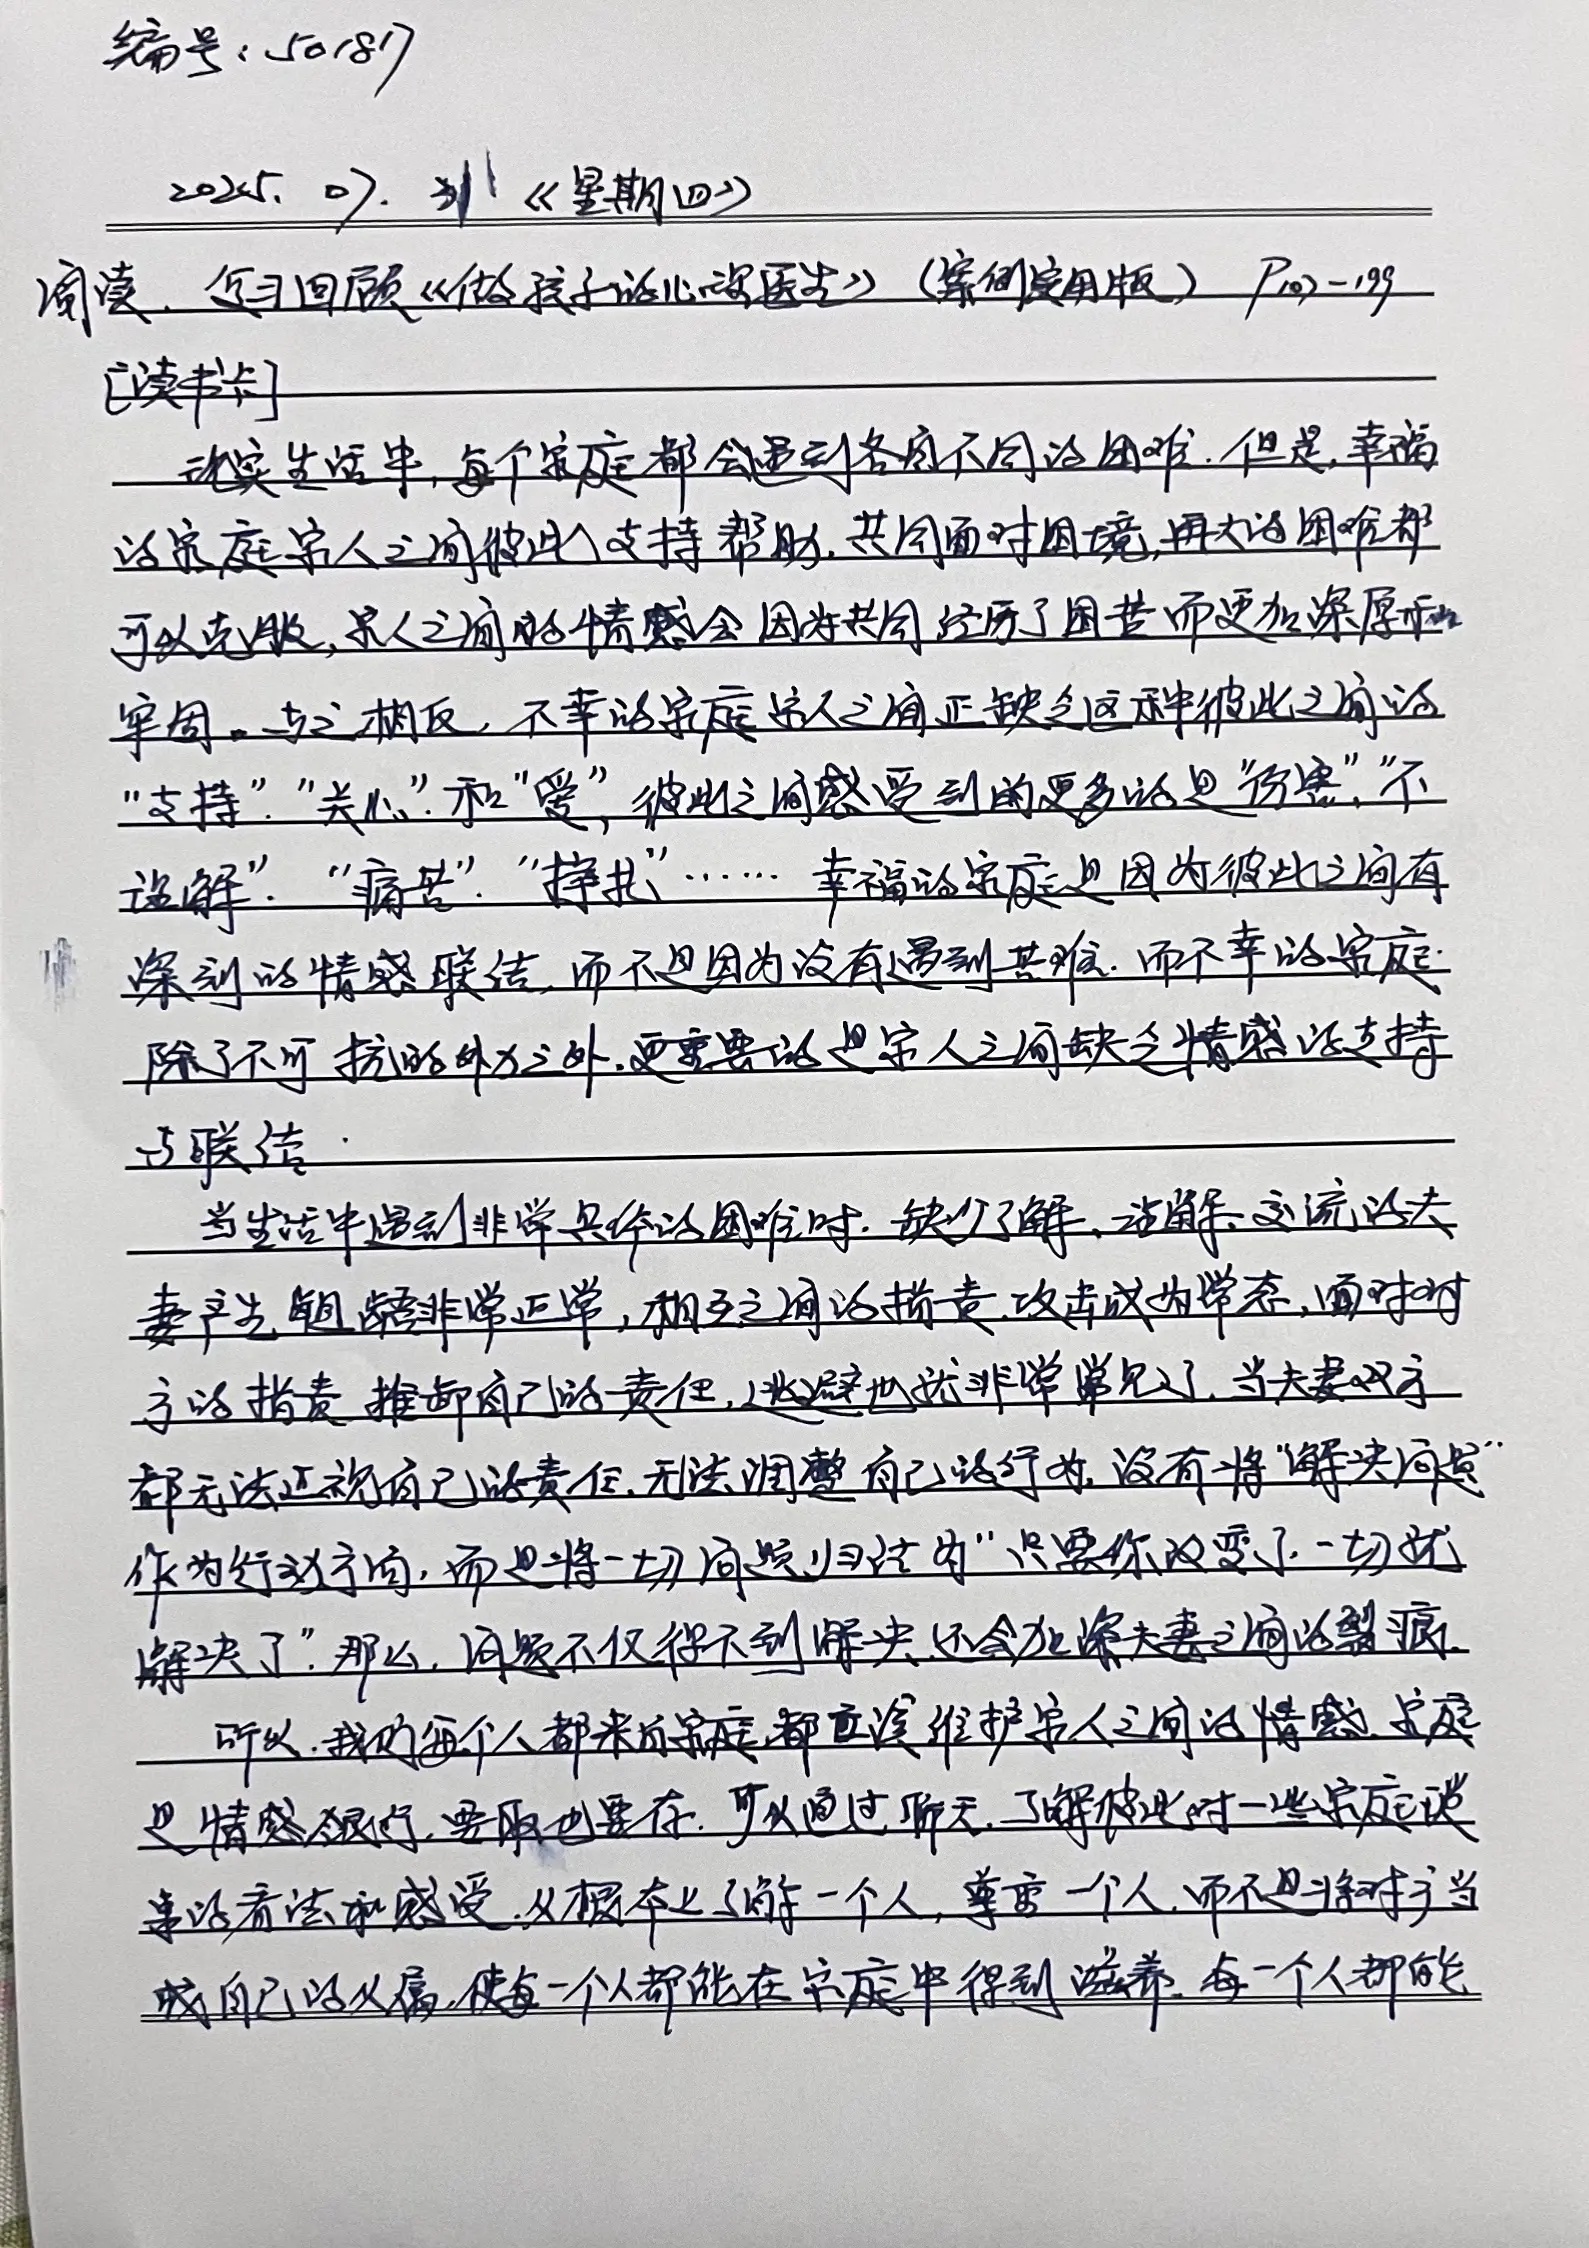 编号:50187
2025. 07. 31 《星期四》
阅读. 复习回顾《做孩子的心灵医生》(案例实用版) P107-199
[读书卡]
现实生活中,每个家庭都会遇到各有不同的困难.但是,幸福
的家庭家人之间彼此支持帮助.共同面对困境,再大的困难都
可以克服,家人之间的情感会因为共同经历了困苦而更加深厚和
牢固。与之相反,不幸的家庭家人之间正缺乏这种彼此之间的
“支持”“关心”和“爱”,彼此之间感受到的更多的是“伤害”,“不
理解”.“痛苦”.“挣扎”……幸福的家庭是因为彼此之间有
深刻的情感联结,而不是因为没有遇到苦难.而不幸的家庭.
除了不可抗的外力之外.更重要的是家人之间缺乏情感的支持
与联结.
当生活中遇到非常具体的困难时.缺少了解、理解、交流的夫
妻产生龃龉非常正常,相互之间的指责.攻击成为常态,面对对
方的指责推卸自己的责任,逃避也就非常常见了.当夫妻双方
都无法正视自己的责任.无法调整自己的行为.没有将“解决问题”
作为行动方向,而是将一切问题归结为“只要你改变了.一切就
解决了”.那么,问题不仅得不到解决.还会加深夫妻之间的裂痕.
所以.我们每个人都来自家庭,都应该维护家人之间的情感.家庭
是情感银行.要取也要存.可以通过聊天.了解彼此对一些家庭琐
事的看法和感受.从根本上了解一个人,尊重一个人.而不是将对方当
成自己的从属.使每一个人都能在家庭中得到滋养.每一个人都能